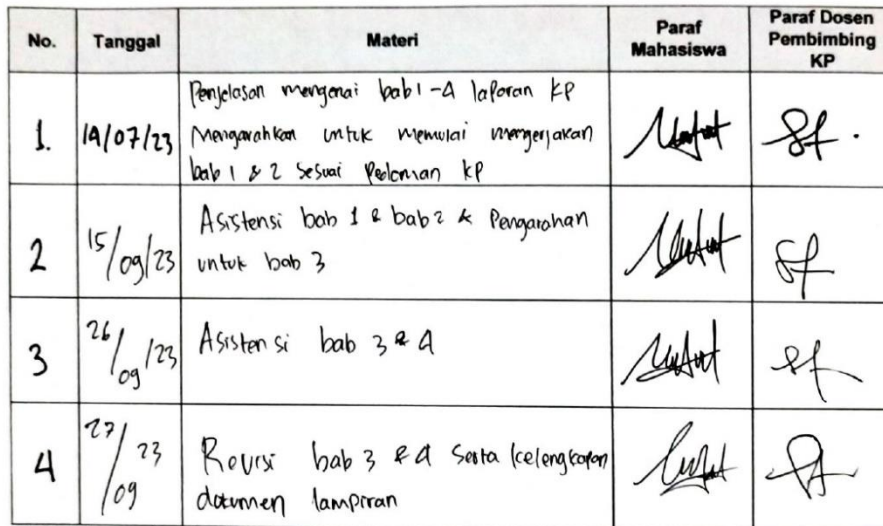 No.
Tanggal
Materi
Paraf
Mahasiswa
Paraf Dosen
Pembimbing
KP
1.
14/07/23
Penjelasan mengenai bab 1-4 laporan KP
Mengarahkan untuk memulai mengerjakan
bab 1 & 2 sesuai Pedoman KP
2
15/09/23
Asistensi bab 1 & bab 2 & Pengarahan
untuk bab 3
3
26/09/23
Asistensi bab 3 & 4
4
27/09 23
Revisi bab 3 & 4 serta kelengkapan
dokumen lampiran